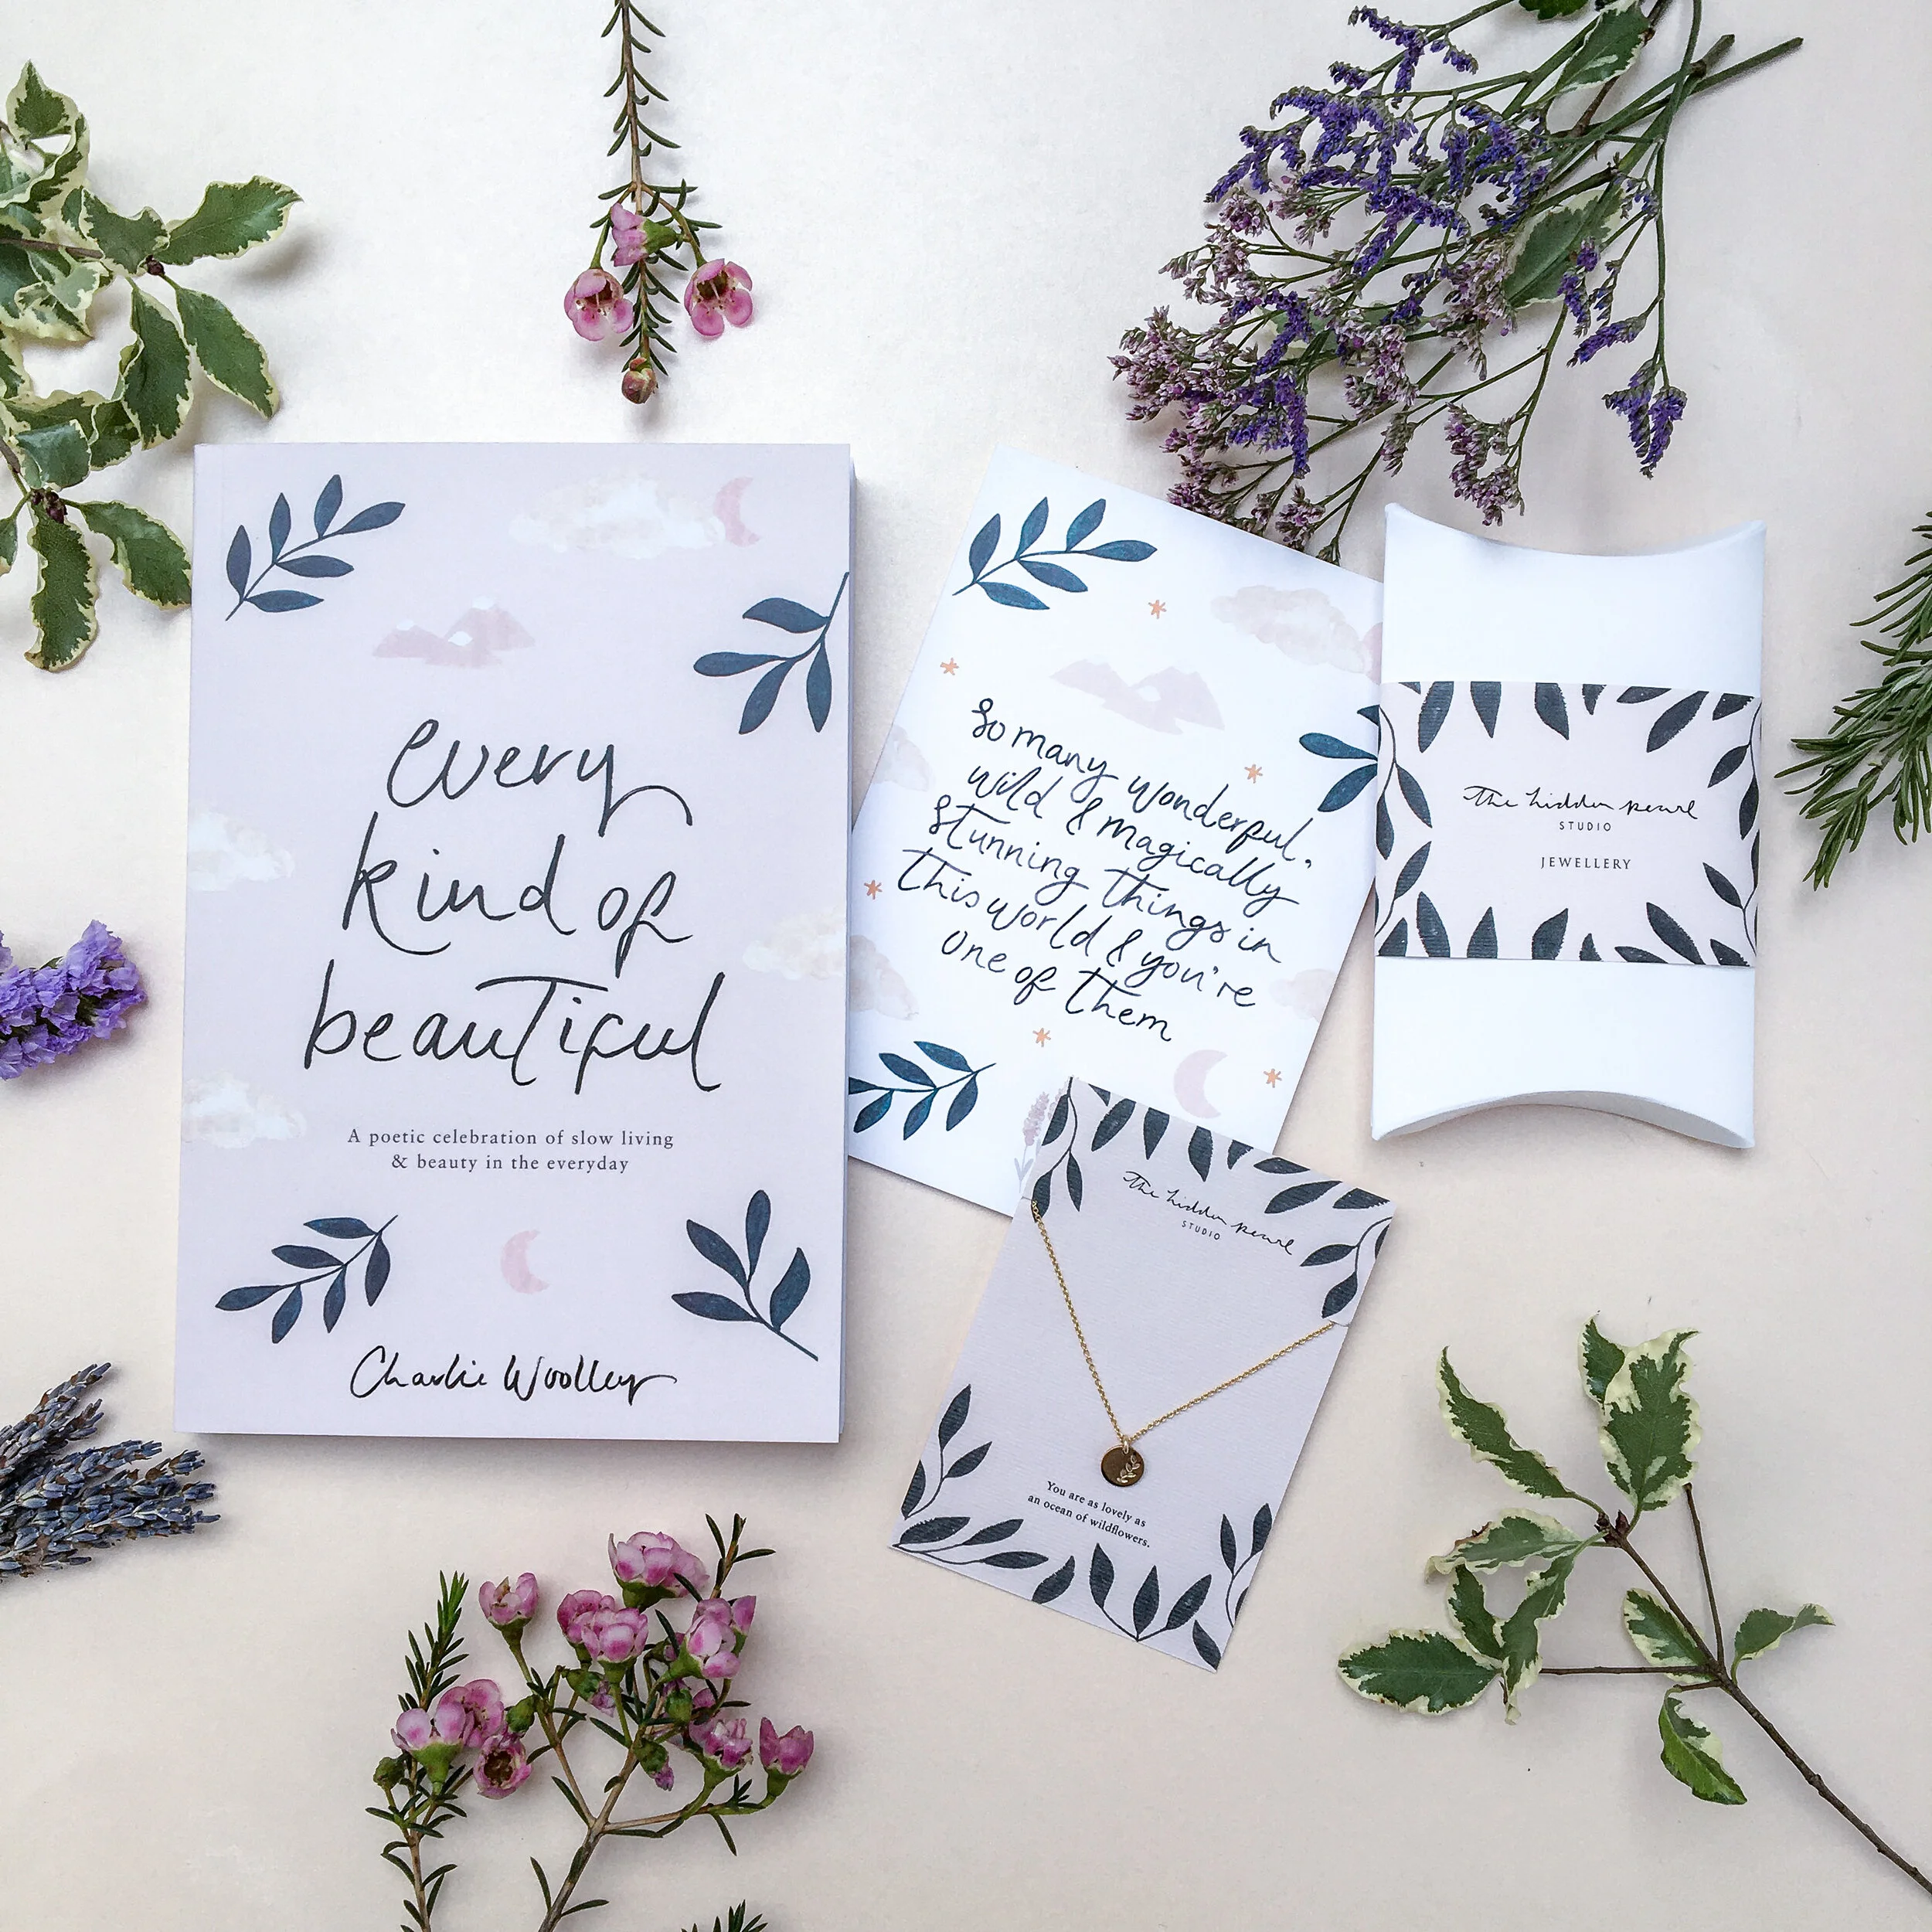 every
kind of
beautiful
A poetic celebration of slow living
& beauty in the everyday
Charlie Woolley
So many wonderful,
wild & magically
stunning things in
this world & you're
one of them
the hidden pearl
STUDIO
JEWELLERY
the hidden pearl
STUDIO
You are as lovely as
an ocean of wildflowers.